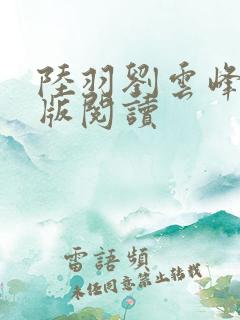 陸羽劉雲峰
版閱讀
雷語頻
未经同意禁止转载